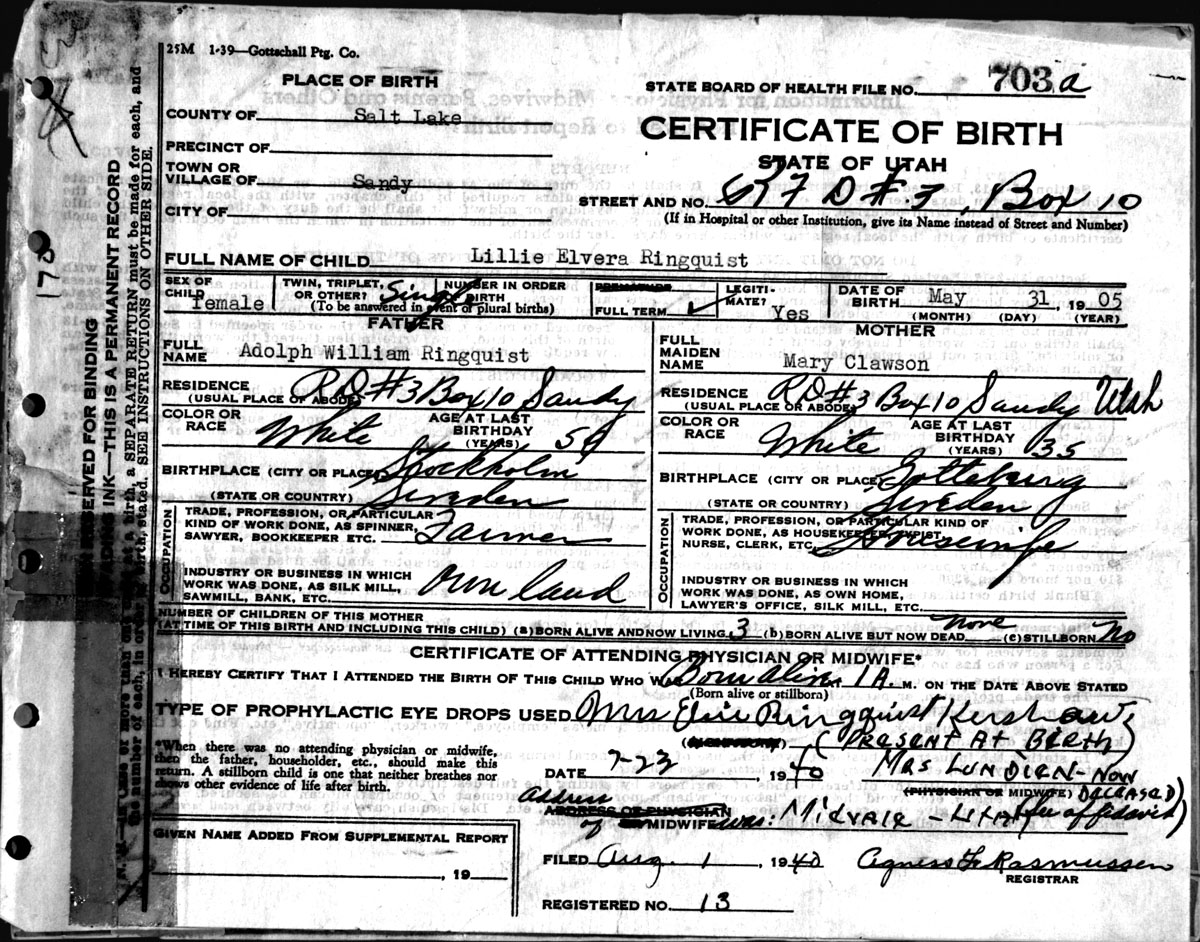 25M 1-39—Gottschall Ptg. Co.
PLACE OF BIRTH
COUNTY OF Salt Lake
PRECINCT OF
TOWN OR
VILLAGE OF Sandy
CITY OF
STATE BOARD OF HEALTH FILE NO. 703a
CERTIFICATE OF BIRTH
STATE OF UTAH
STREET AND NO. D #3, Box 10
(If in Hospital or other Institution, give its Name instead of Street and Number)
FULL NAME OF CHILD Lillie Elvera Ringquist
SEX OF
CHILD Female
TWIN, TRIPLET,
OR OTHER? Single
NUMBER IN ORDER
OF BIRTH
(To be answered in event of plural births)
PREMATURE
FULL TERM ✓
LEGITI-
MATE? Yes
DATE OF
BIRTH May 31 1905
(MONTH) (DAY) (YEAR)
FATHER
FULL
NAME Adolph William Ringquist
RESIDENCE RD#3 Box 10 Sandy
(USUAL PLACE OF ABODE)
COLOR OR
RACE White
AGE AT LAST
BIRTHDAY
(YEARS)
BIRTHPLACE (CITY OR PLACE) Stockholm
(STATE OR COUNTRY) Sweden
OCCUPATION
TRADE, PROFESSION, OR PARTICULAR
KIND OF WORK DONE, AS SPINNER,
SAWYER, BOOKKEEPER ETC. Farmer
INDUSTRY OR BUSINESS IN WHICH
WORK WAS DONE, AS SILK MILL,
SAWMILL, BANK, ETC. Own land
MOTHER
FULL
MAIDEN
NAME Mary Clawson
RESIDENCE RD#3 Box 10 Sandy Utah
(USUAL PLACE OR ABODE)
COLOR OR
RACE White
AGE AT LAST
BIRTHDAY
(YEARS) 35
BIRTHPLACE (CITY OR PLACE) Gotteburg
(STATE OR COUNTRY) Sweden
OCCUPATION
TRADE, PROFESSION, OR PARTICULAR KIND OF
WORK DONE, AS HOUSEKEEPER, TYPIST,
NURSE, CLERK, ETC. Housewife
INDUSTRY OR BUSINESS IN WHICH
WORK WAS DONE, AS OWN HOME,
LAWYER'S OFFICE, SILK MILL, ETC.
NUMBER OF CHILDREN OF THIS MOTHER
(AT TIME OF THIS BIRTH AND INCLUDING THIS CHILD) (a) BORN ALIVE AND NOW LIVING 3 (b) BORN ALIVE BUT NOW DEAD none (c) STILLBORN No
CERTIFICATE OF ATTENDING PHYSICIAN OR MIDWIFE*
I HEREBY CERTIFY THAT I ATTENDED THE BIRTH OF THIS CHILD WHO WAS Born alive 1 A. M. ON THE DATE ABOVE STATED
(Born alive or stillborn)
TYPE OF PROPHYLACTIC EYE DROPS USED Mrs Elsie Ringquist Kershaw
(PRESENT AT BIRTH)
*When there was no attending physician or midwife,
then the father, householder, etc., should make this
return. A stillborn child is one that neither breathes nor
shows other evidence of life after birth.
DATE 7-23 1940 MRS LUNDIEN - NOW
(PHYSICIAN OR MIDWIFE) DECEASED)
Address
ADDRESS OF PHYSICIAN
of OR MIDWIFE was: MIDVALE - UTAH (see affidavit)
GIVEN NAME ADDED FROM SUPPLEMENTAL REPORT
, 19
FILED Aug. 1, 1940 Agness L Rasmussen
REGISTRAR
REGISTERED NO. 13
178
INK—THIS IS A PERMANENT RECORD